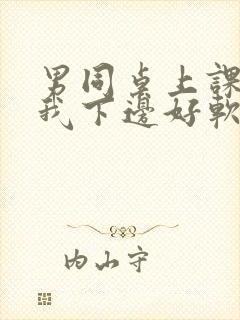 男同桌上課
我下邊好軟
内山守